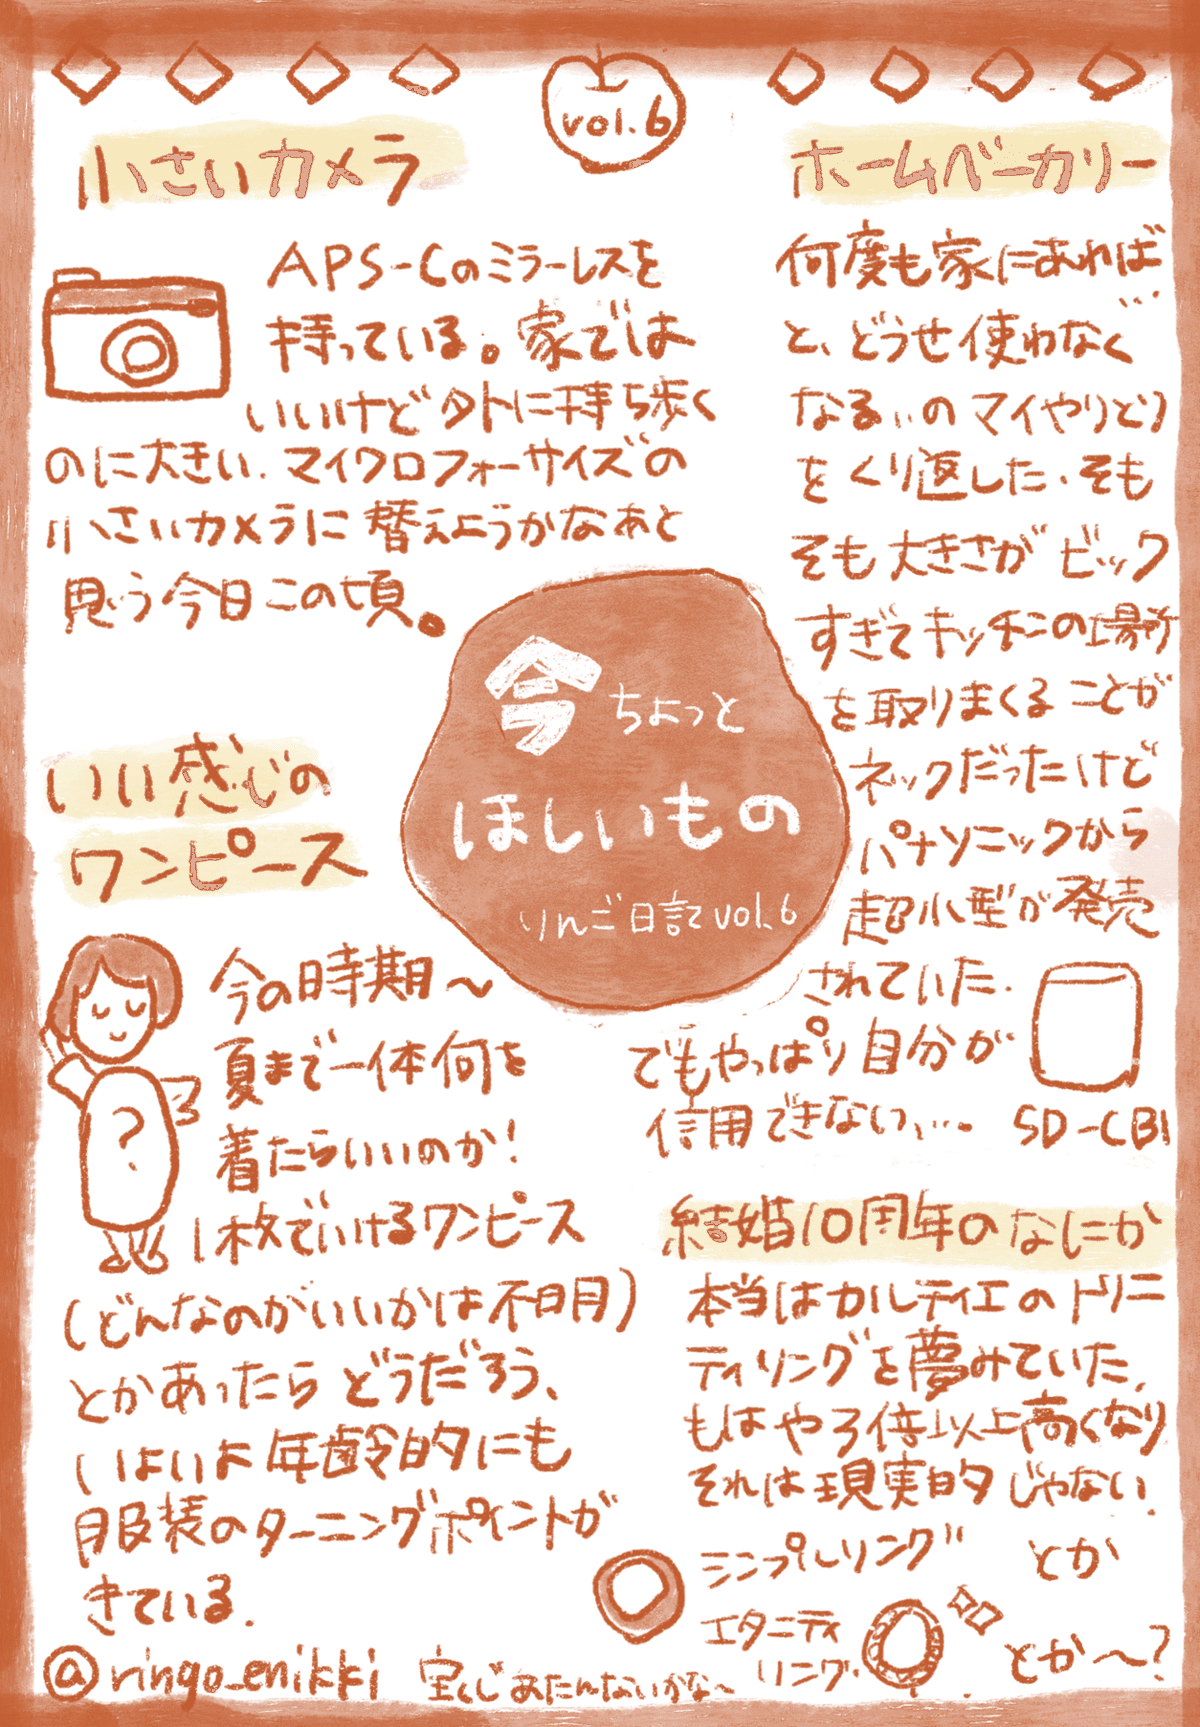 vol.6
小さいカメラ
APS-Cのミラーレスを
持っている。家では
いいけど外に持ち歩く
のに大きい.マイクロフォーサイズの
小さいカメラに替えようかなぁと
思う今日この頃。
ホームベーカリー
何度も家にあれば…
と、どうせ使わなく
なる…のマイやりとり
をくり返した.そも
そも大きさがビック
すぎてキッチンの場所
を取りまくることが
ネックだったけど
パナソニックから
超小型が発売
されていた.
でもやっぱり自分が
信用できない、…。
SD-CB1
今ちょっと
ほしいもの
りんご日記vol.6
いい感じの
ワンピース
今の時期〜
夏まで一体何を
着たらいいのか!
1枚でいけるワンピース
(どんなのがいいかは不明)
とかあったらどうだろう、
いよいよ年齢的にも
服装のターニングポイントが
きている.
?
結婚10周年のなにか
本当はカルティエのトリニ
ティリングを夢みていた.
もはや3倍以上高くなり
それは現実的じゃない.
シンプルリング とか
エタニティ
リング. とか〜?
@ringo_enikki
宝くじあたんないかな〜